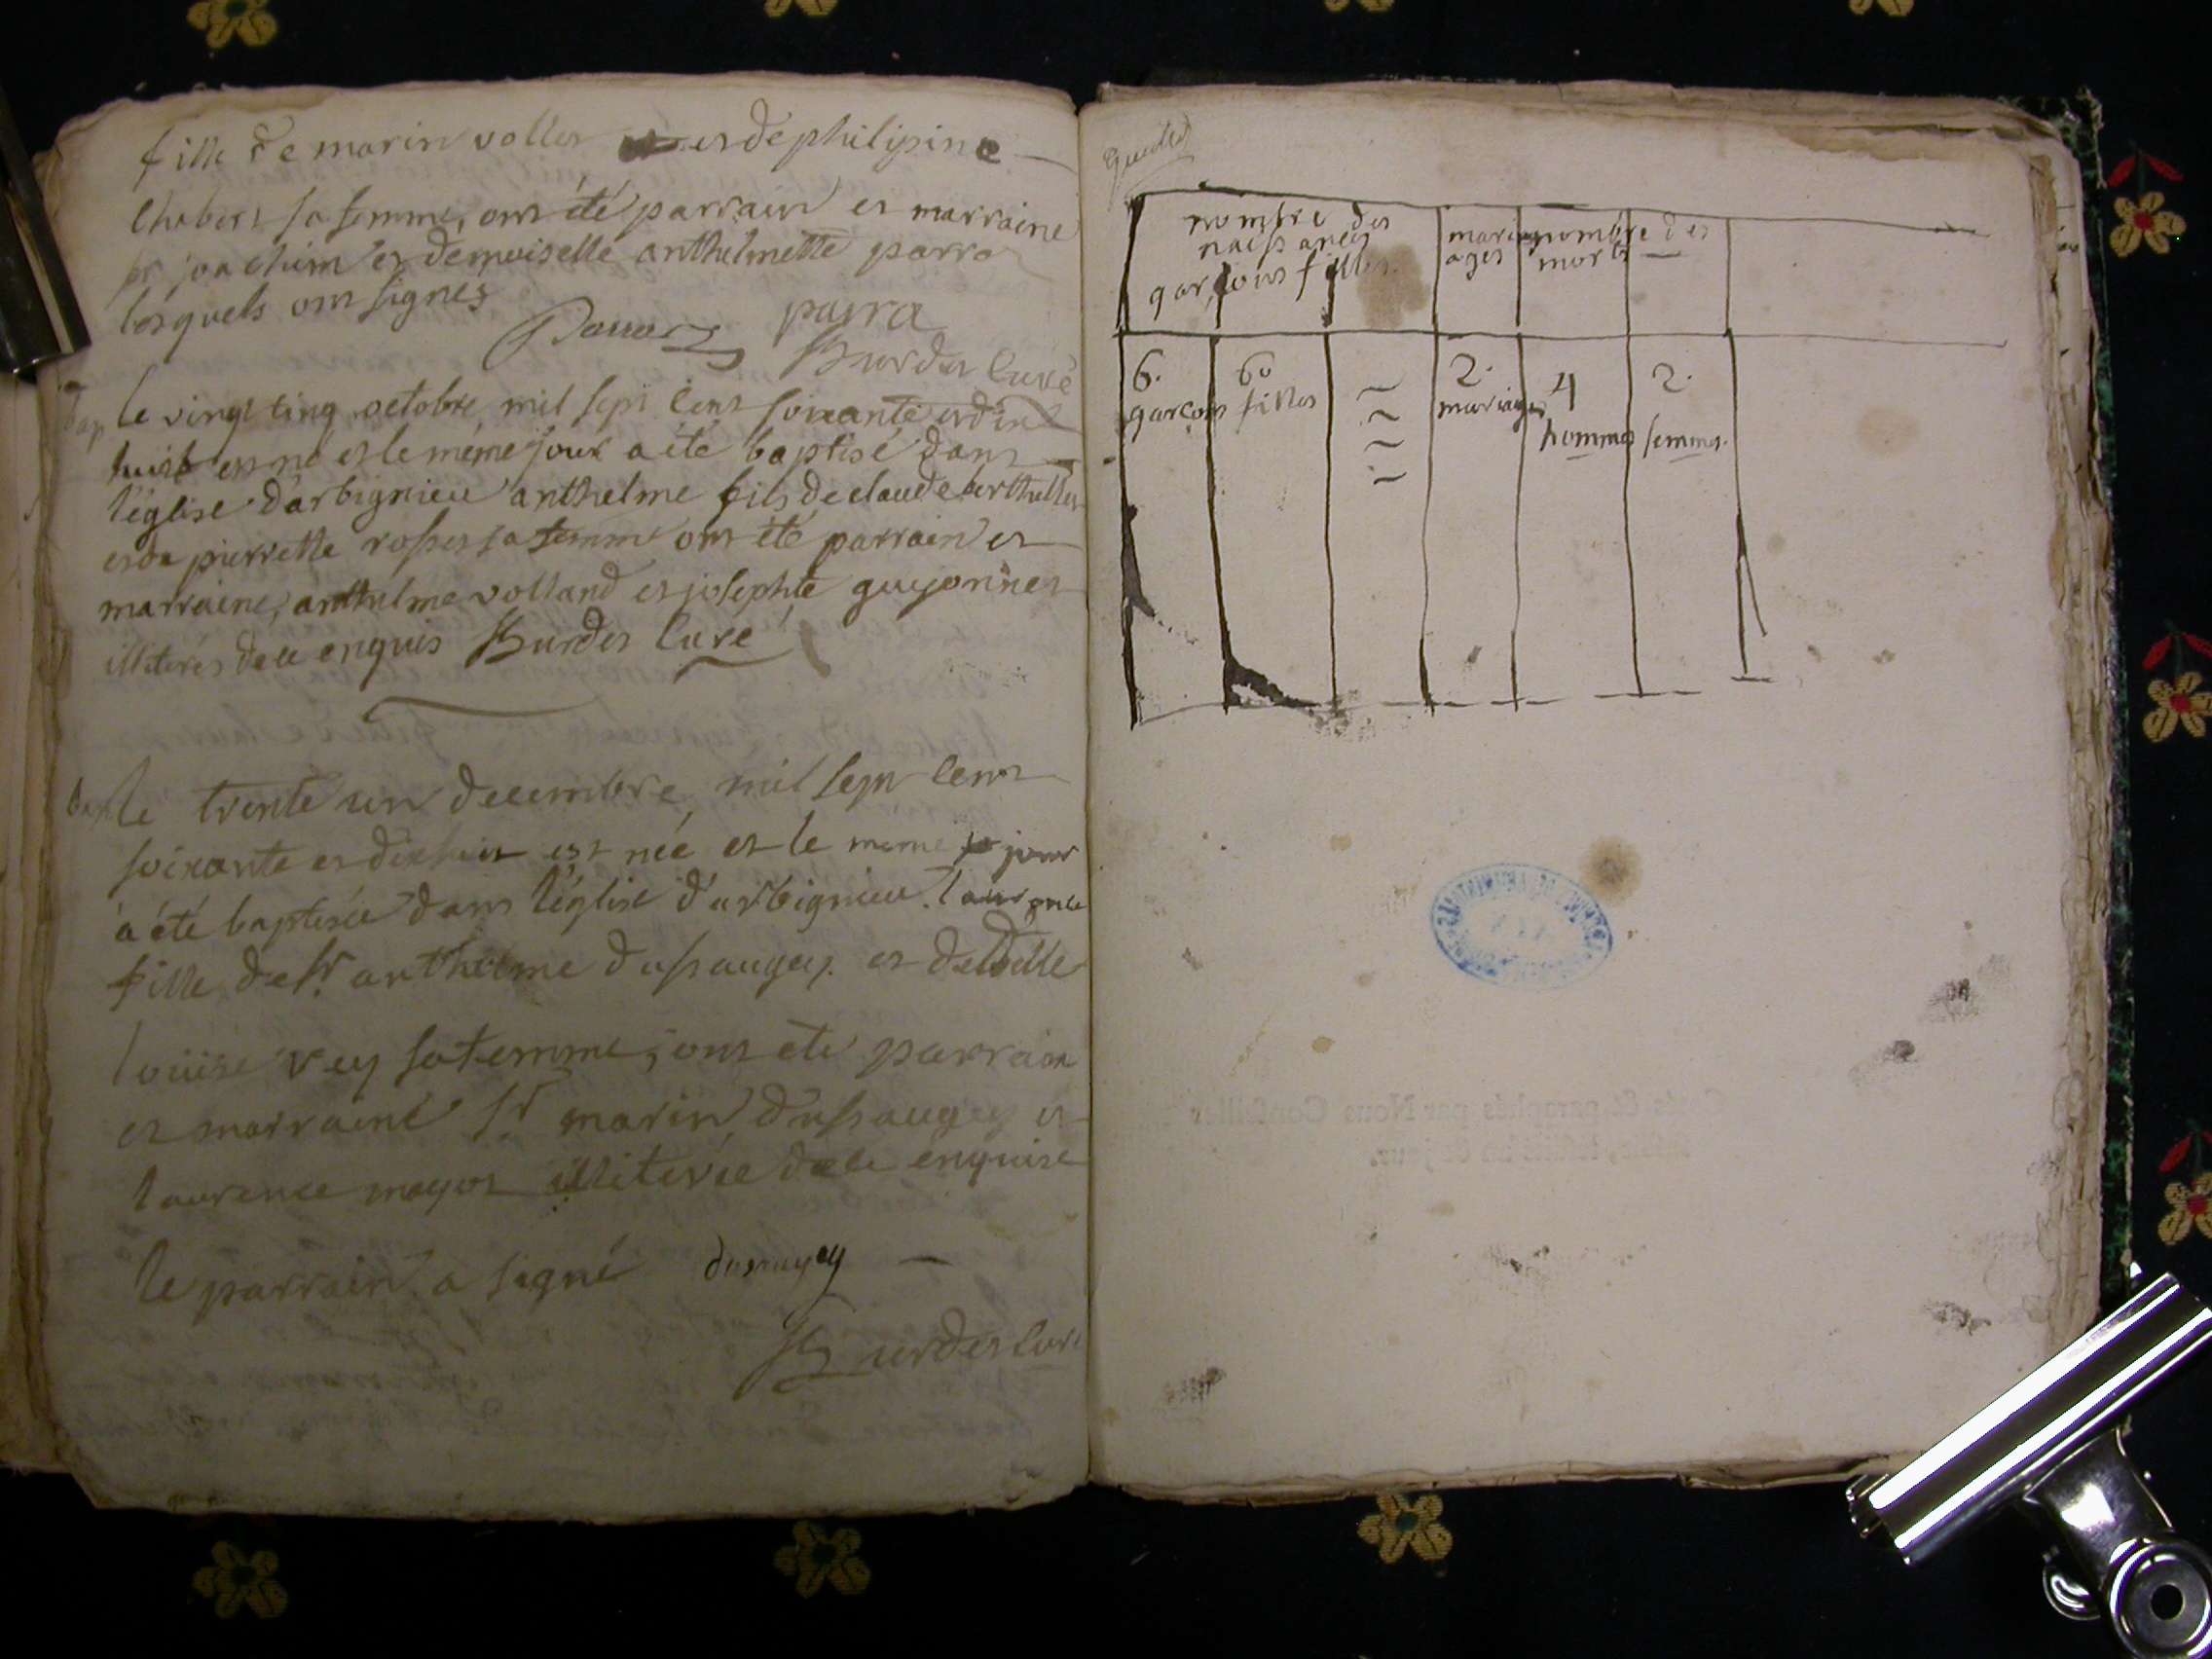 fille de marin vollet et de philipine
Chabert sa femme, ont été parrain et marraine
sr joachim et demoiselle anthelmette parra
lesquels ont signes
parra
Burdet Curé
bap
le vingt cinq octobre mil sept cent soixante et dix
huit est né et le même jour a été baptisé dans
l'église d'arbignieu anthelme fils de claude berthellet
et de pierrette rosset sa femme ont été parrain et
marraine, anthelme volland et josephte guyonnet
illiterés de ce enquis Burdet Curé
bap
le trente un decembre mil sept cent
soixante et dixhuit est née et le meme jour
a été baptisée dans l'église d'arbignieu laurence
fille de sr anthelme dussaugey et de dlle
louise rey sa femme, ont été parrain
et marraine sr marin dussaugey et
laurence moyat illiterée de ce enquise
le parrain a signé dussaugey
Burdet Curé
nombre des
naissances
garçons filles
mari
ages
nombre des
morts
6. 60 2. 4 2.
garçons filles mariages
hommes femmes.